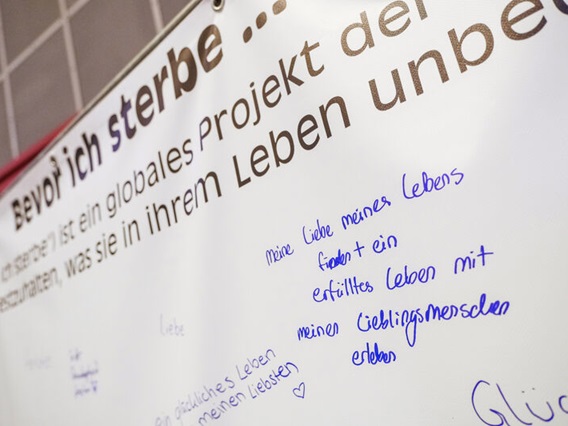 Bevor ich sterbe ...
ich sterbe") ist ein globales Projekt der
estzuhalten, was sie in ihrem Leben unbe
meine Liebe meines Lebens
finden + ein
erfülltes Leben mit
meinen Lieblingsmenschen
erleben
Liebe
ein glückliches Leben
meinen Liebsten
Glüc